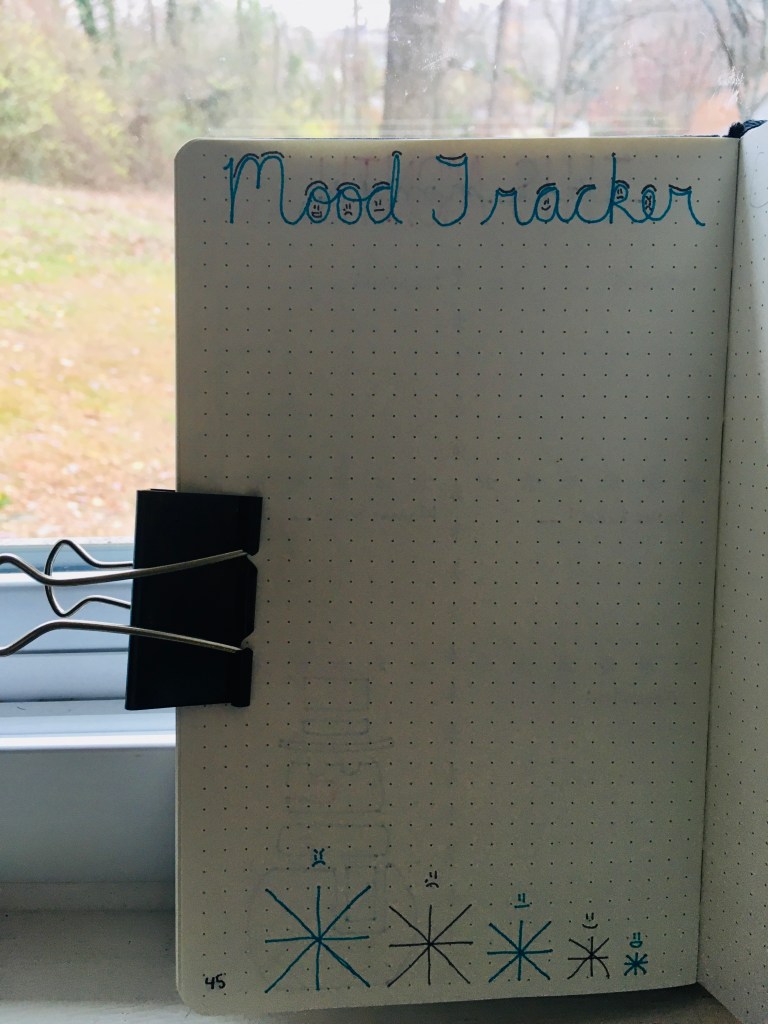 Mood Tracker
45